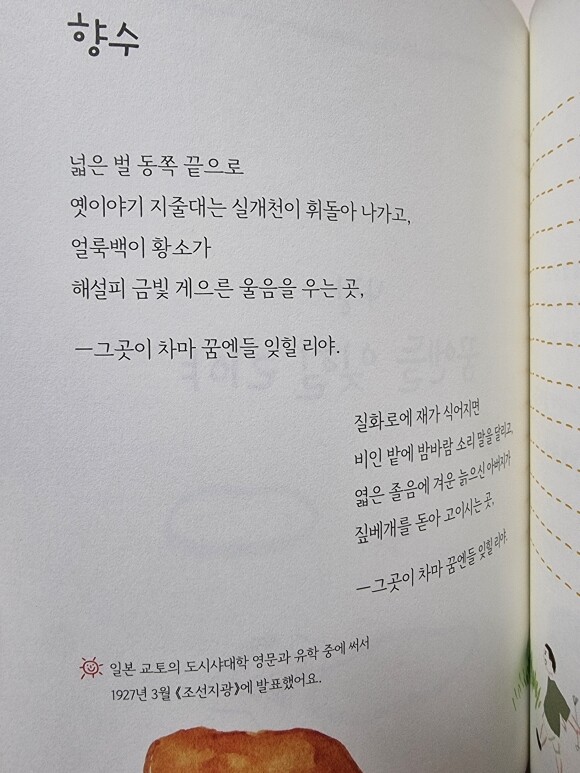 향수
넓은 벌 동쪽 끝으로
옛이야기 지줄대는 실개천이 휘돌아 나가고,
얼룩백이 황소가
해설피 금빛 게으른 울음을 우는 곳,
―그곳이 차마 꿈엔들 잊힐 리야.
질화로에 재가 식어지면
비인 밭에 밤바람 소리 말을 달리고,
엷은 졸음에 겨운 늙으신 아버지가
짚베개를 돋아 고이시는 곳,
―그곳이 차마 꿈엔들 잊힐 리야.
일본 교토의 도시샤대학 영문과 유학 중에 써서
1927년 3월 《조선지광》에 발표했어요.